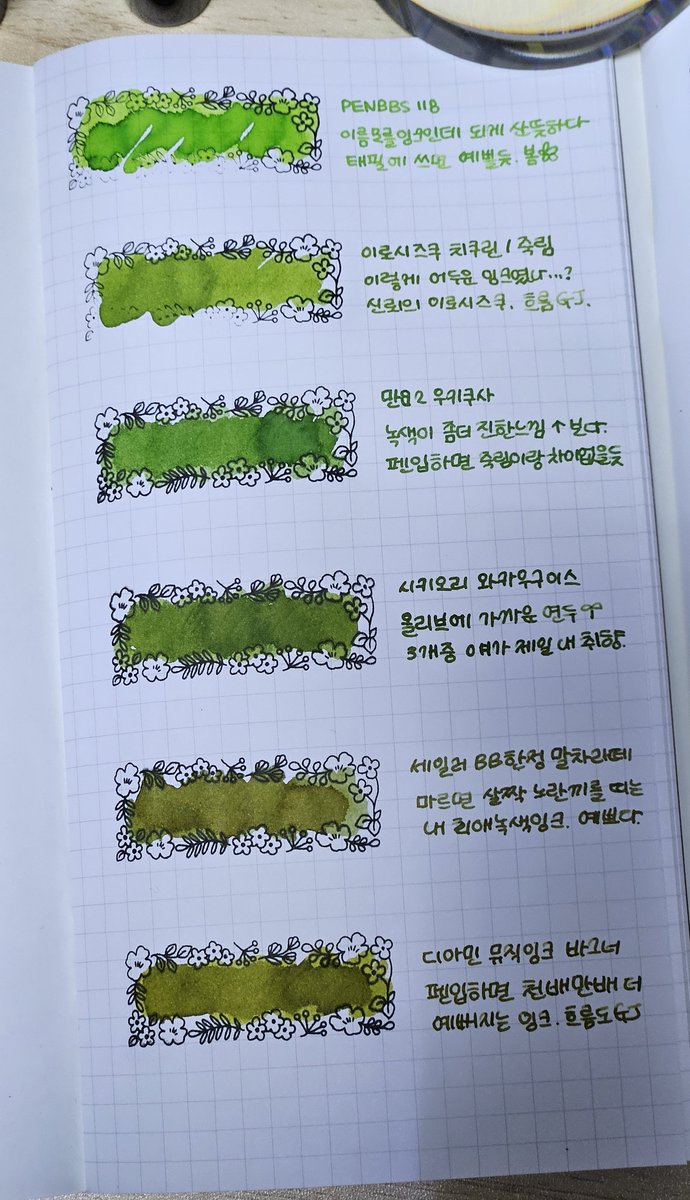 PENBBS 118
이름모를잉크인데 되게 산뜻하다
태필에 쓰면 예쁠듯. 봄
이로시즈쿠 치쿠린 / 죽림
이렇게 어두운 잉크였나...?
신뢰의 이로시즈쿠. 흐름GJ.
만요2 우키쿠사
녹색이 좀더 진한느낌 ↑ 보다.
펜입하면 죽림이랑 차이없을듯
시키오리 와카우구이스
올리브에 가까운 연두
3개중 얘가 제일 내 취향.
세일러 BB한정 말차라떼
마르면 살짝 노란끼를 띠는
내 최애녹색잉크. 예쁘다.
디아민 뮤직잉크 바그너
펜입하면 천배만배 더
예뻐지는 잉크. 흐름도GJ